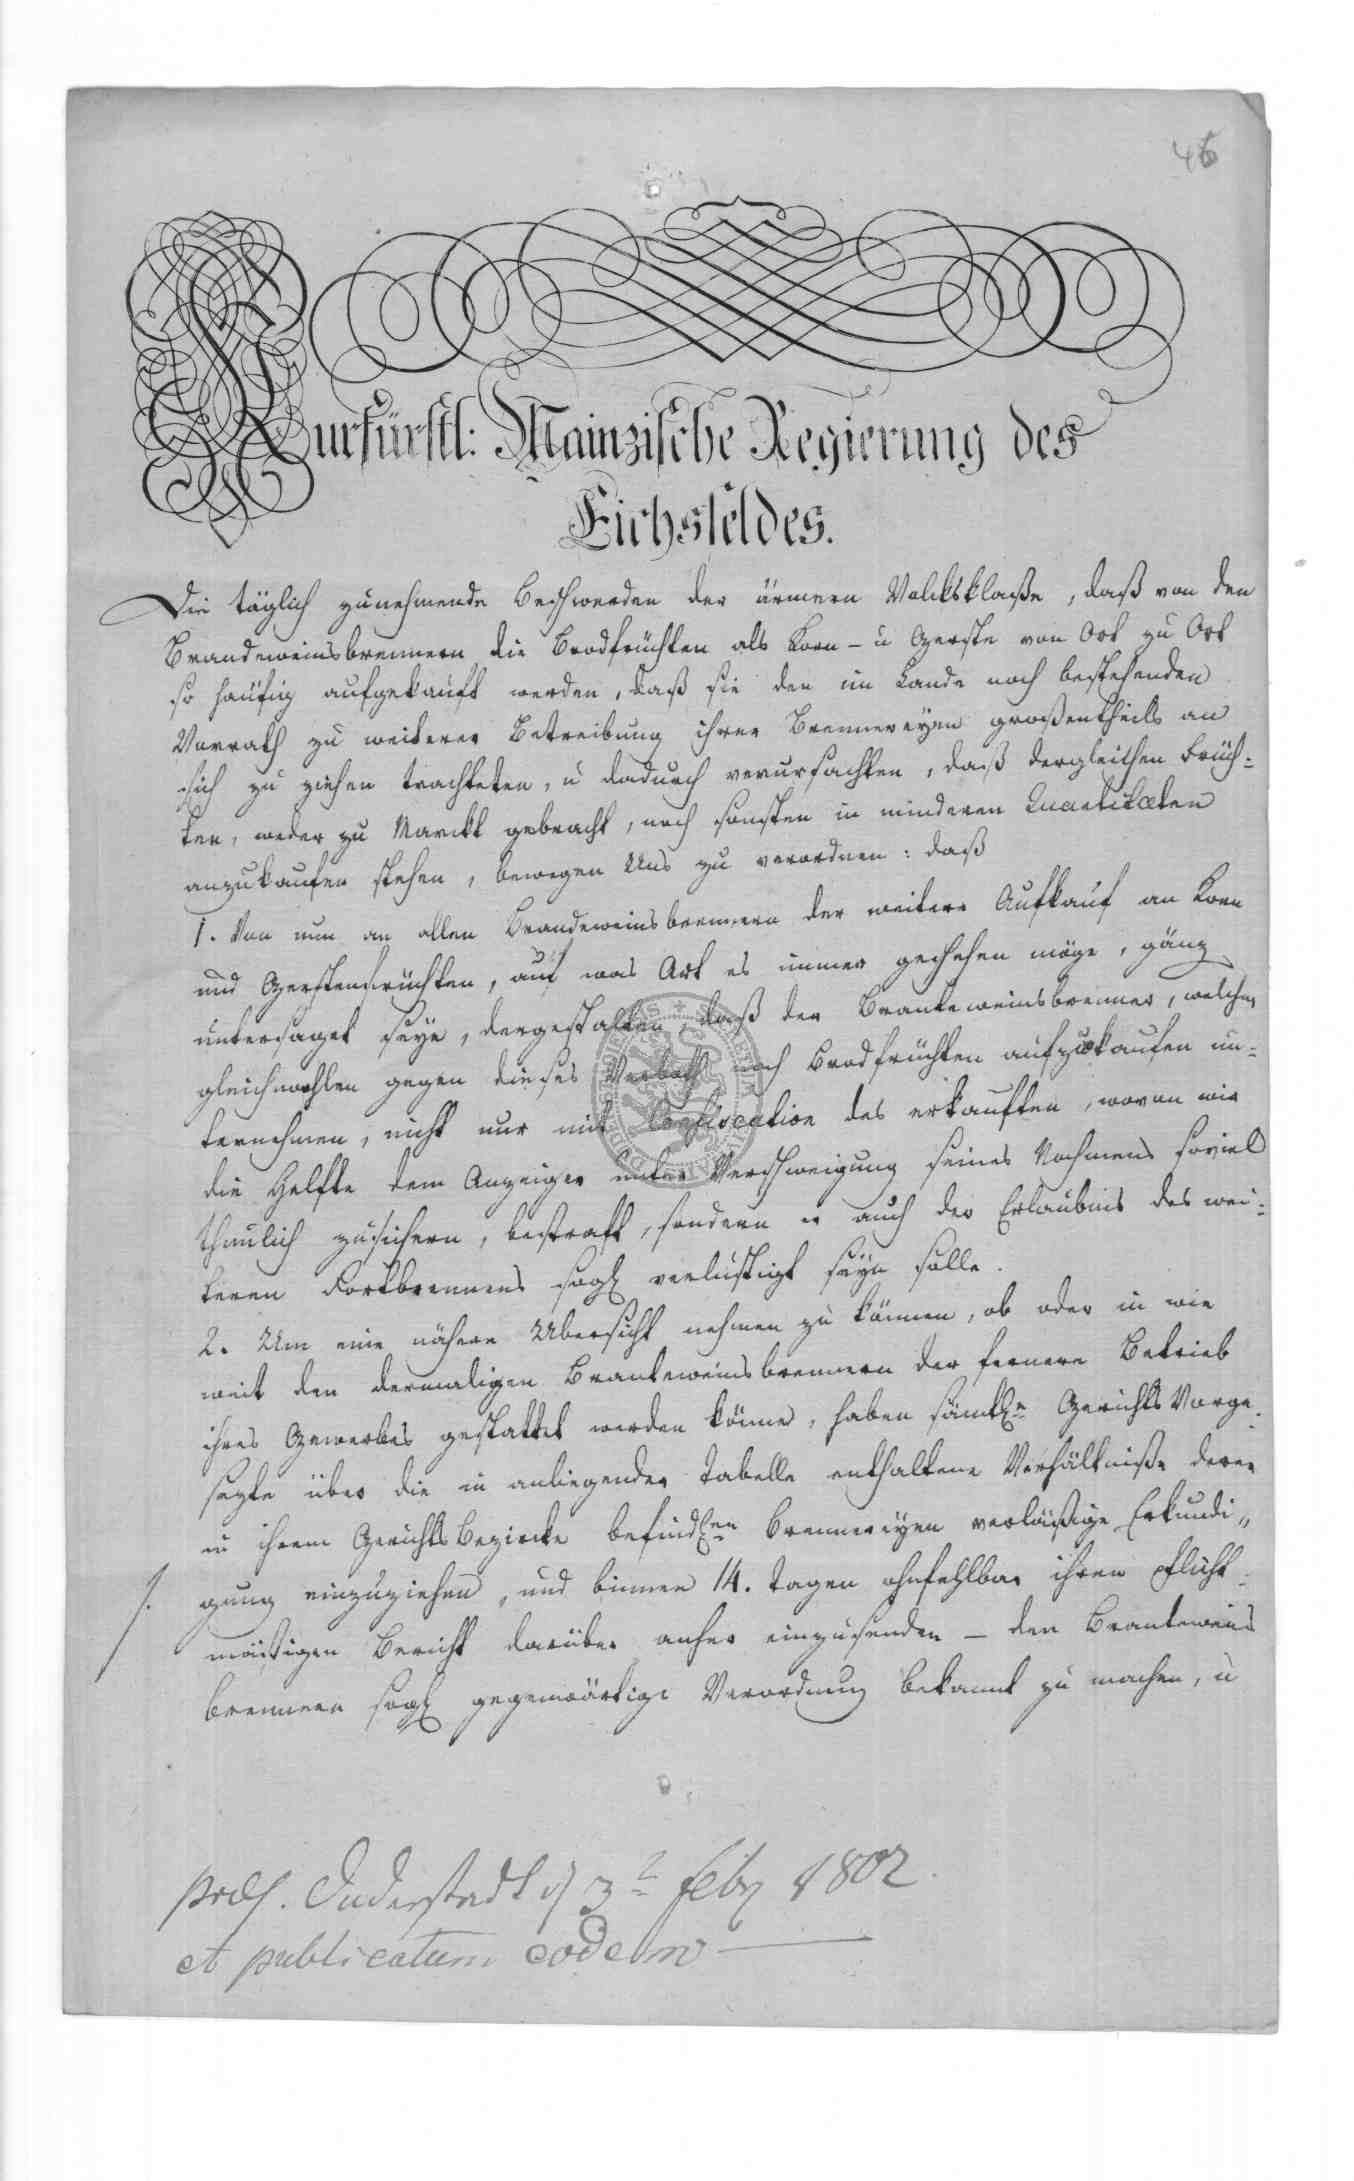 46
Kurfürstl: Mainzische Regierung des
Eichsfeldes.
Die täglich zunehmende Beschwerden der ärmern Volcksklaße, daß von den
Brandeweinsbrennern die Brodfrüchten als Korn- u Gerste von Ort zu Ort
so häufig aufgekauft werden, daß sie den im Lande noch bestehenden
Vorrath zu weiterer Betreibung ihrer Brennereyen großentheils an
sich zu ziehen trachteten, u dadurch verursachten, daß dergleichen Früch-
ten, weder zu Marckt gebracht, noch sonsten in minderen Quantitæten
anzukaufen stehen, bewegen Uns zu verordnen: daß
1. Von nun an allen Brandeweinsbrennern der weitere Aufkauf an Korn
und Gerstenfrüchten, auf was Art es immer geschehen möge, gänz
untersaget seye, dergestalten, daß der Branteweinsbrenner, welcher
gleichwohlen gegen dieses Verboth noch Brodfrüchten aufzukaufen un-
ternehmen, nicht nur mit Confiscation des erkauften, wovon wir
die Helfte dem Anzeiger unter Verschweigung seines Nahmens soviel
thunlich zusichern, bestraft, sondern auch der Erlaubnis des wei-
teren Fortbrennens sogl verlustigt seyn solle.
2. Um eine nähere Übersicht nehmen zu können, ob oder in wie
weit den dermaligen Branteweinsbrennern der fernere Betrieb
ihres Gewerbes gestattet werden könne, haben sämtle Gerichts Vorge-
sezte über die in anliegender Tabelle enthaltene Verhältniße deren
in ihrem Gerichts Bezircke befindlen Brennereyen verläßige Erkundi„
gung einzuziehen, und binnen 14. Tagen ohnfehlbar ihren Pflicht-
mäßigen Bericht darüber anher einzusenden – den Branteweins
brennern sogl gegenwärtige Verordnung bekannt zu machen, u
præs. Duderstadt d 3t Febr 1802.
et publicatum eodem